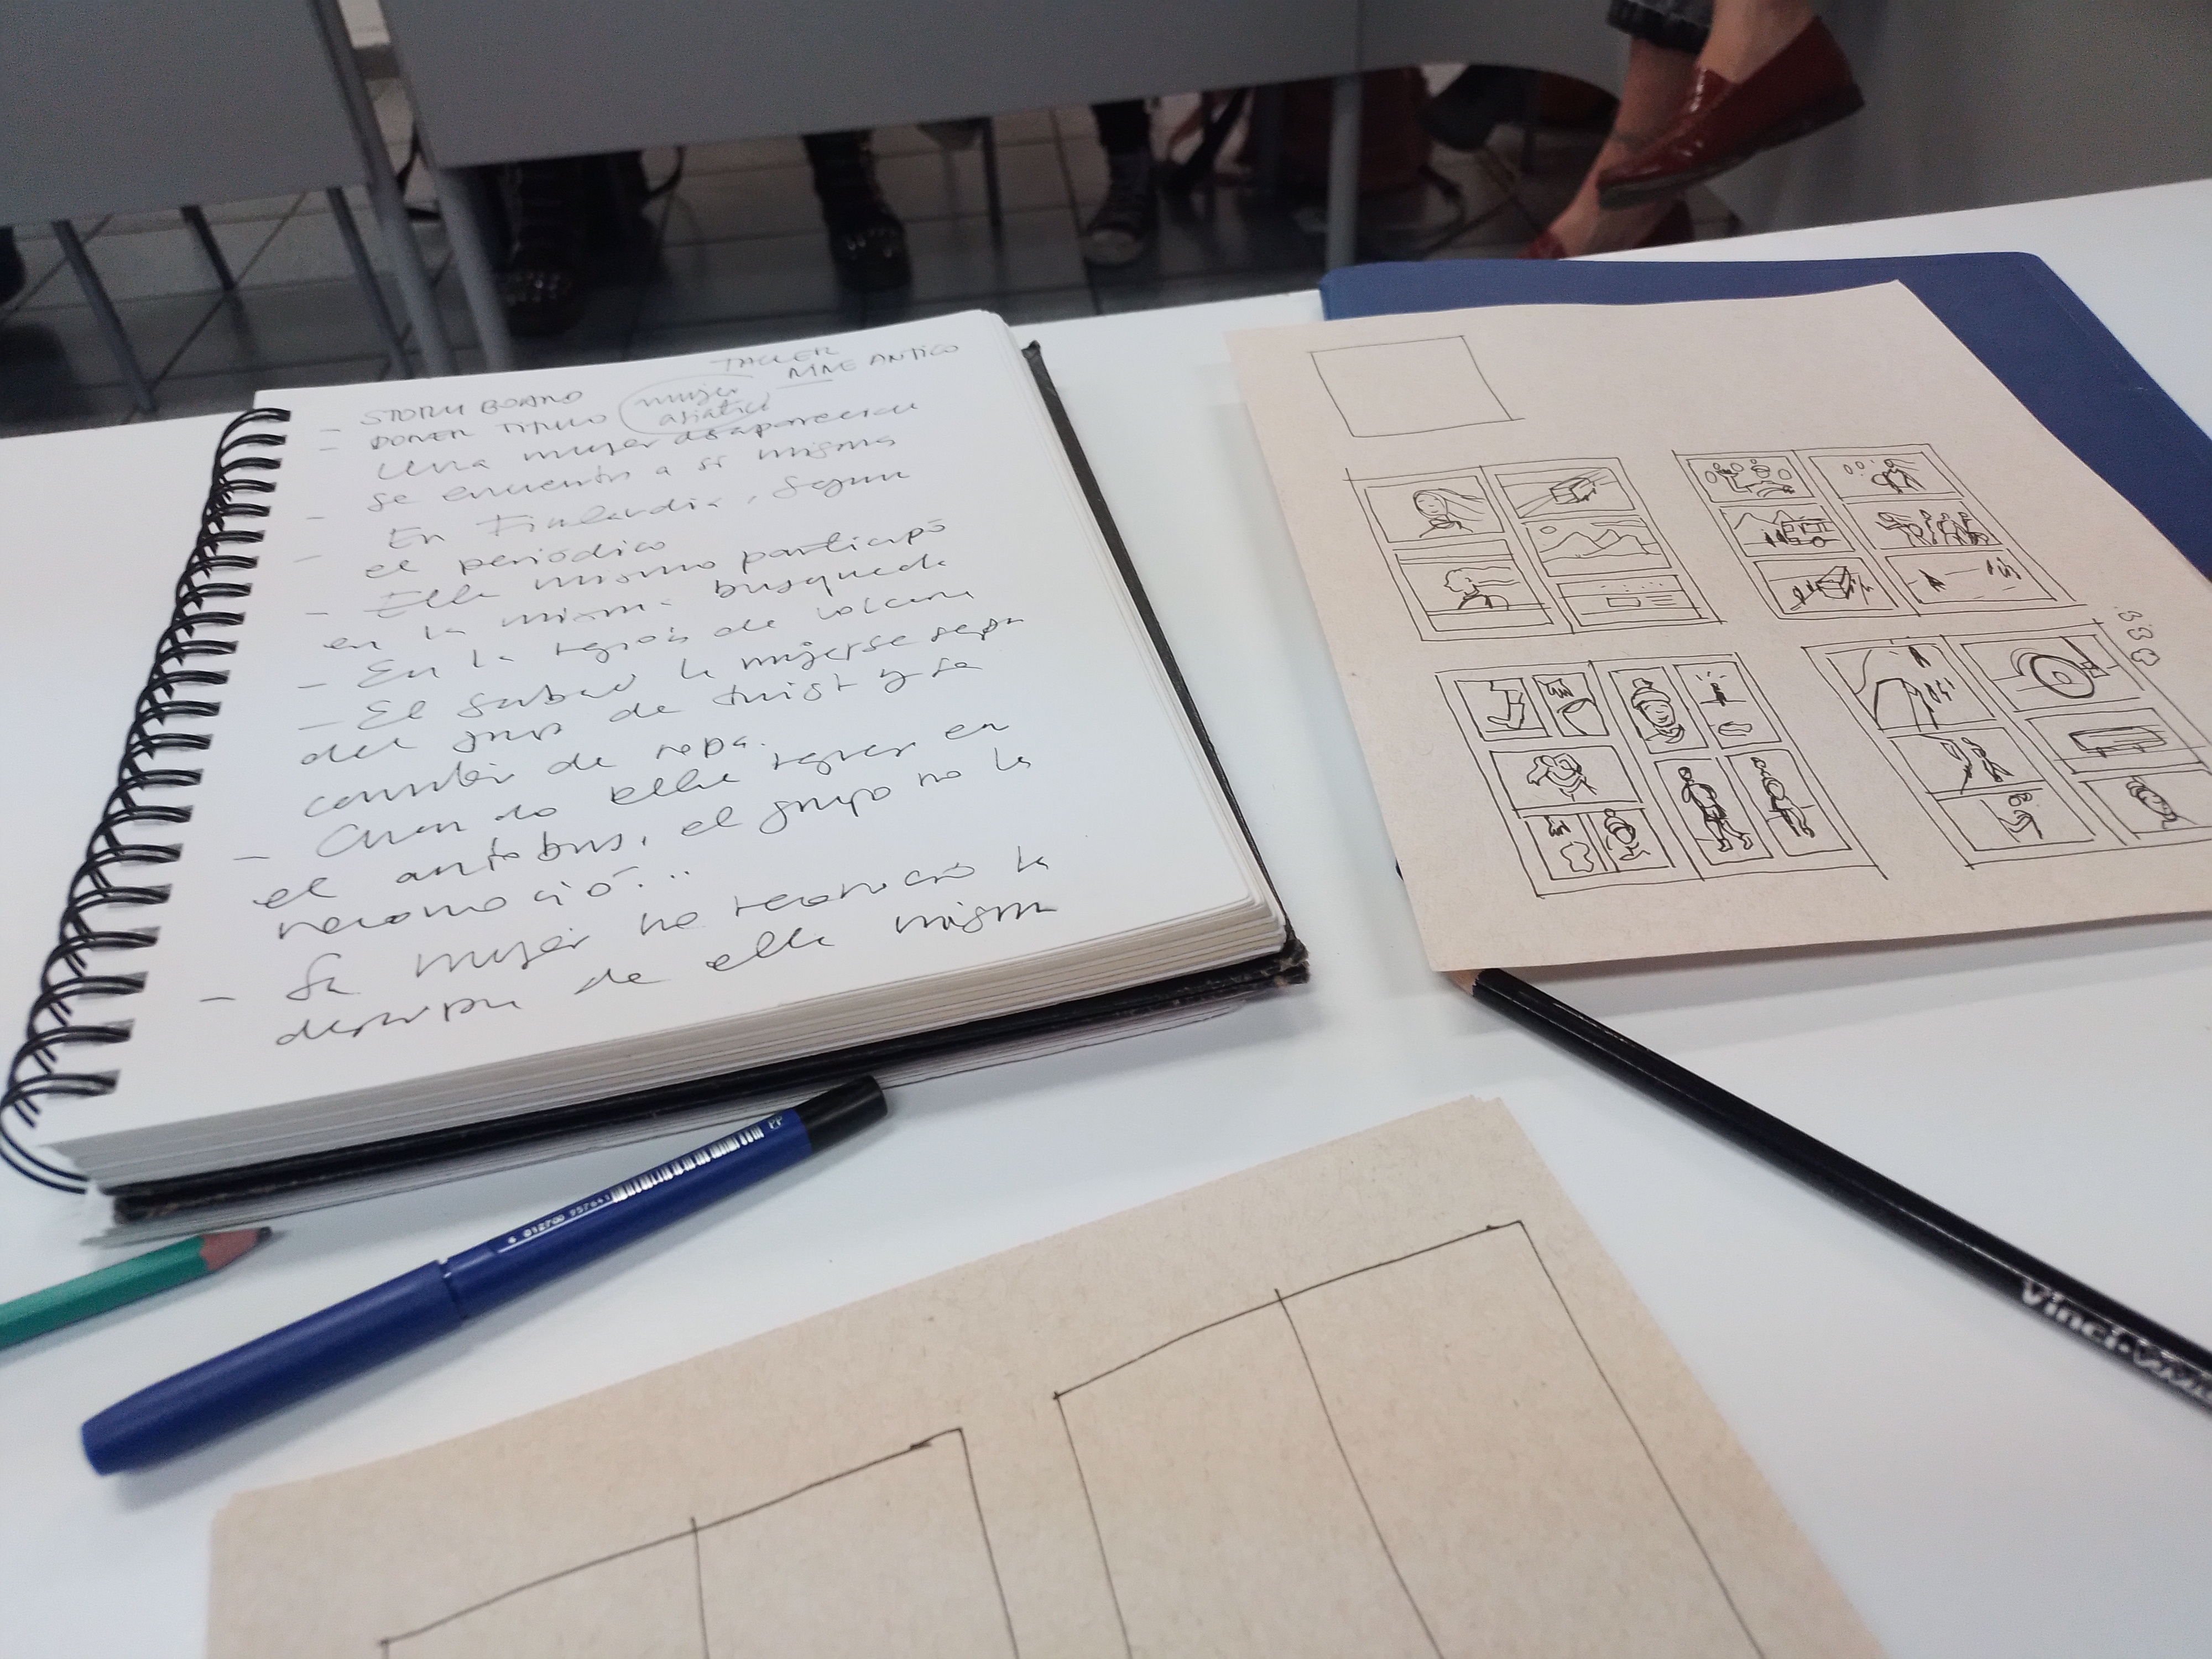 TALLER
MNE ANTICO
- STORY BOARD
- PONER TITULO mujer
asiática
Una mujer desaparecida
se encuentra a si misma
- En Finlandia, segun
- el periódico
- Ella misma participó
en la misma busqueda
- En la región de volcane
- El la mujer se sepa
del grup de twist y se
cambia de ropa.
- Cuando ella regresa en
el autobus, el grupo no la
reconoció...
- La mujer no reconoció la
de ella misma
012700 957643
EP
Vinci